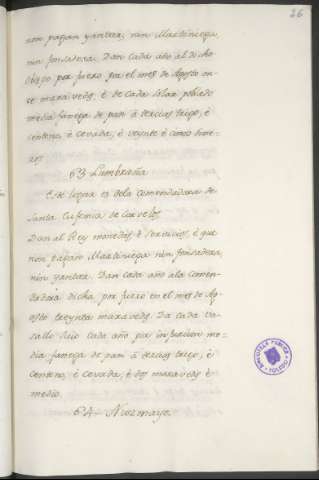 26
non pagan yantar, nin Martiniega,
nin fonsadera. Dan cada año al dicho
Obispo por fuero por el mes de Agosto on-
ce maravedis, é de cada solar poblado
media fanega de pan á tercias trigo, é
centeno, é cevada, é veynte é cinco dine-
ros.
63 Lumbraña
Este logar es dela Comendadora de
Santa Eufemia de Coryelos.
Dan al Rey monedas, é servicios, é que
non pagaro Martiniega nin fonsadera,
nin yantar. Dan cada año ala Comen-
dadora dicha, por fuero en el mes de Ago-
osto treynta maravedis. Da cada va-
sallo suio cada año por infurcion me-
dia fanega de pan á tercias trigo, é
centeno, é cevada, é dos maravedis é
medio.
64 Nuezmayo.